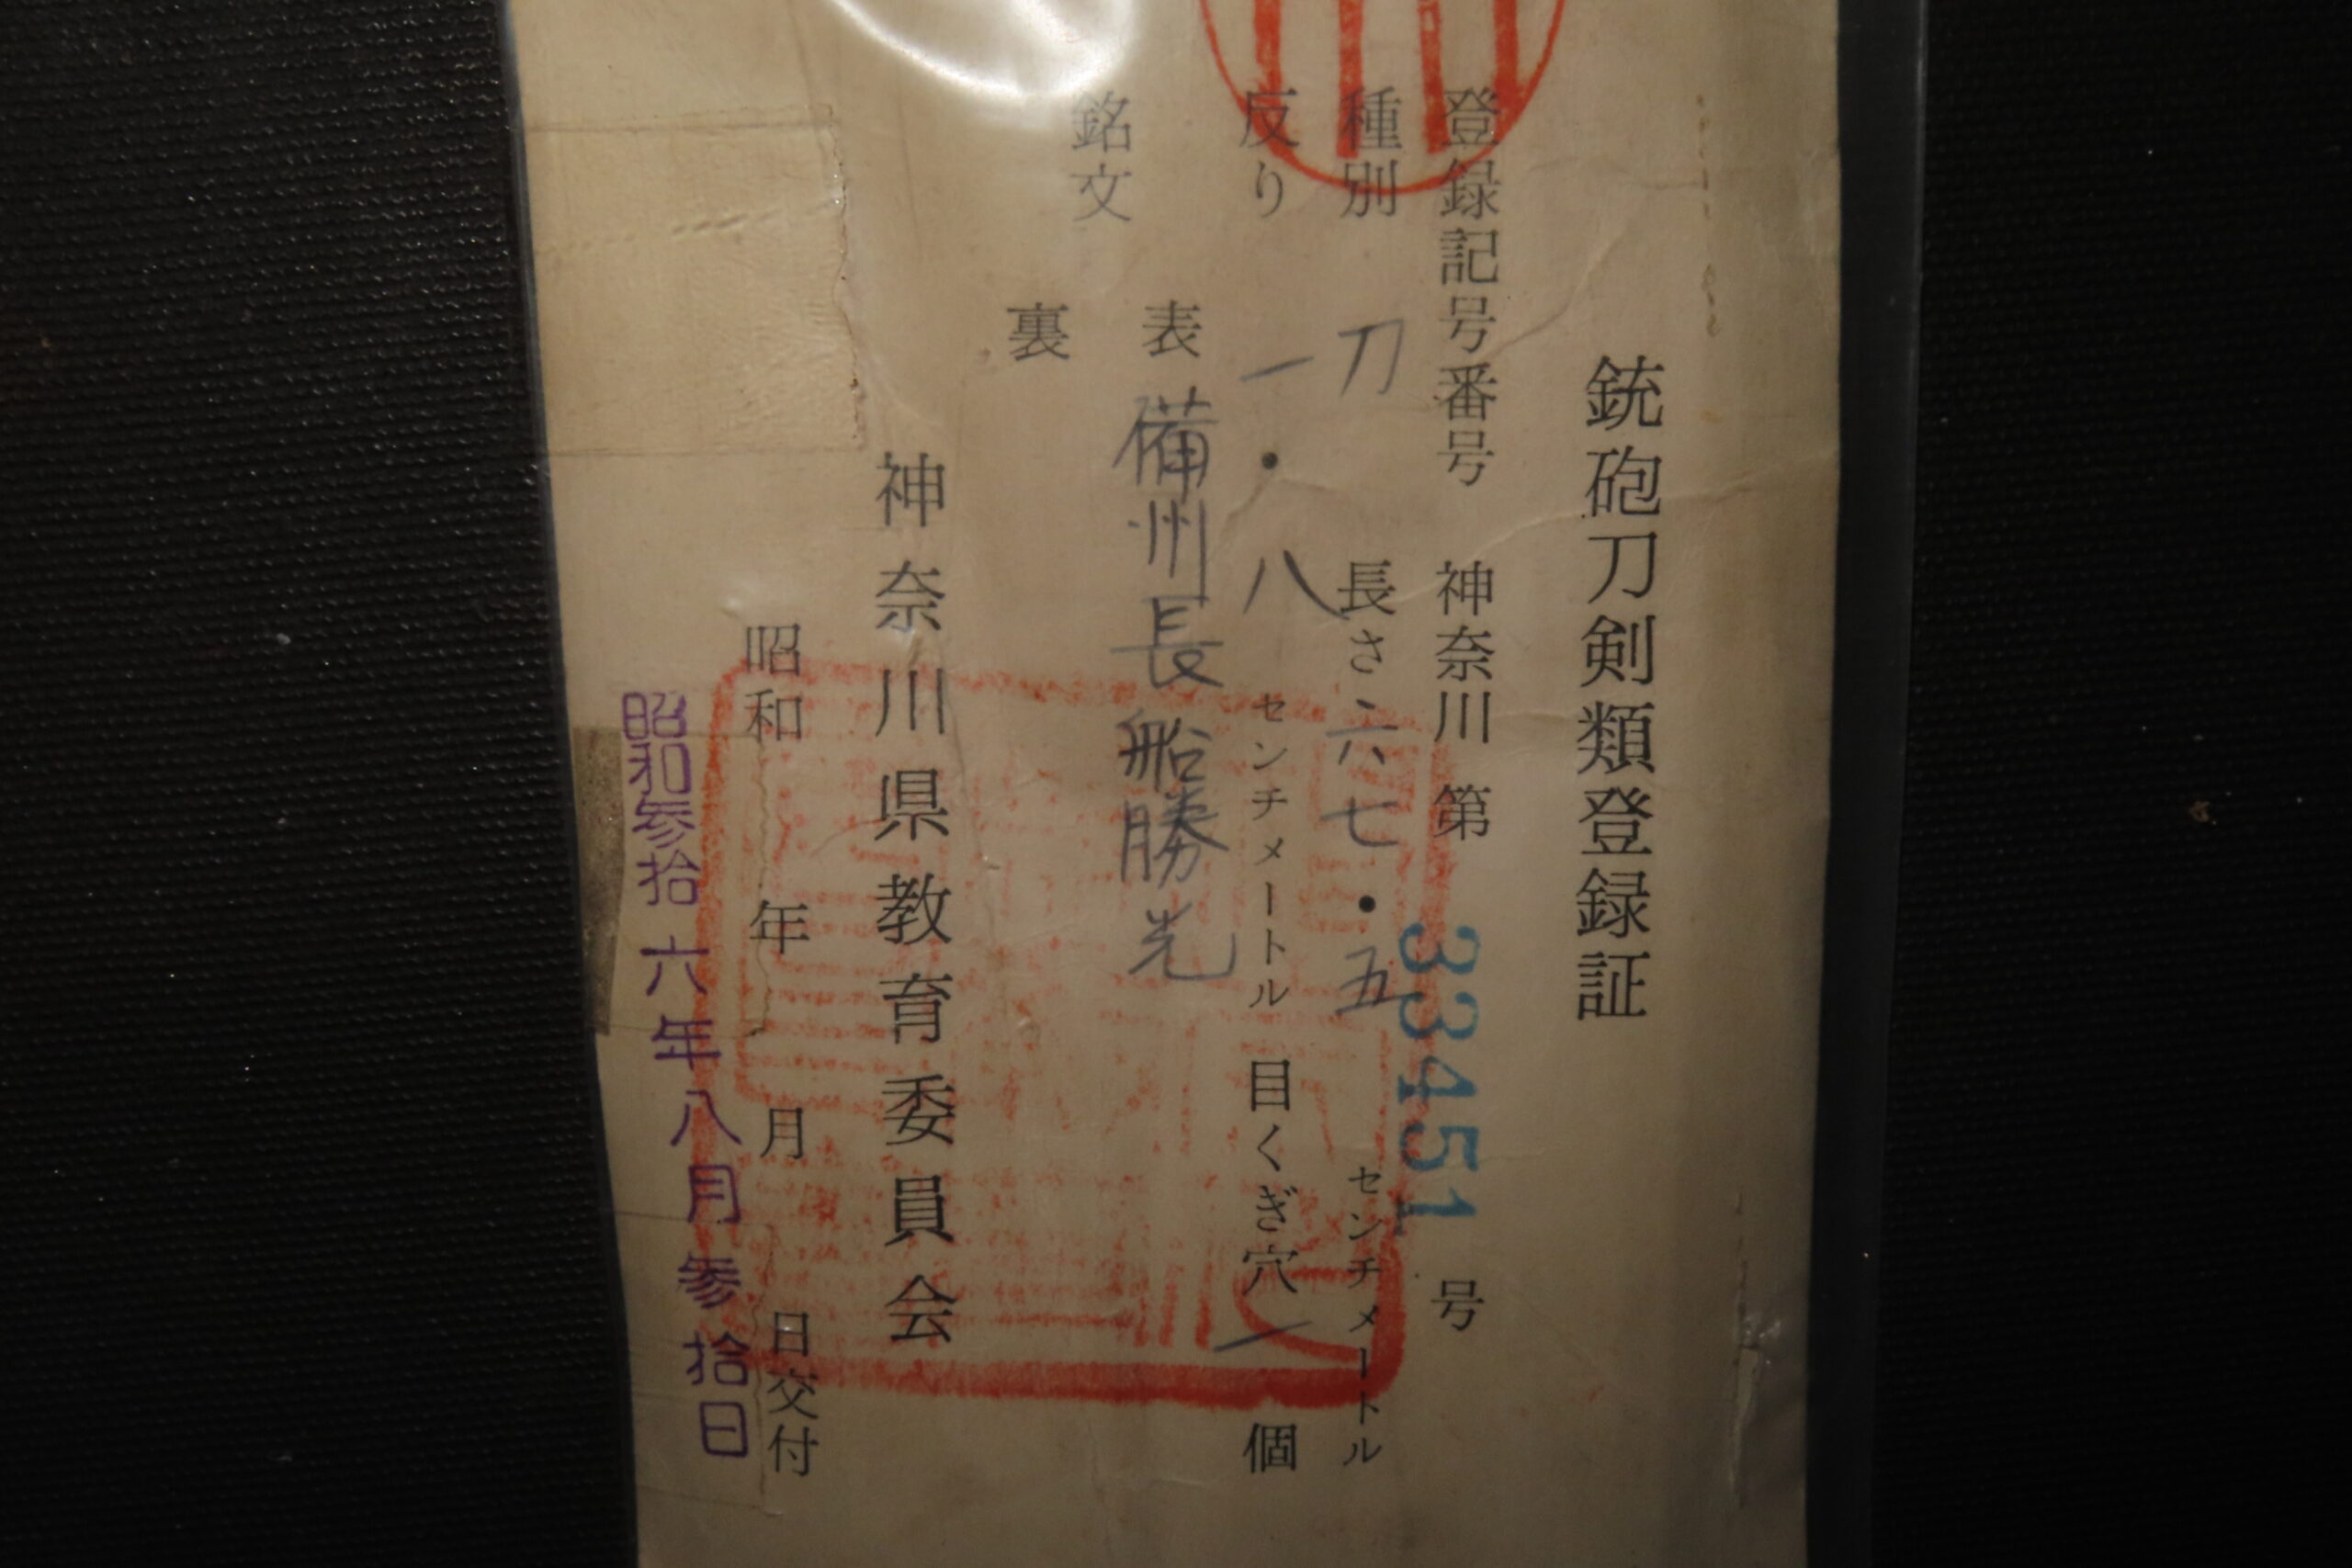 銃砲刀剣類登録証
登録記号番号 神奈川 第 33451 号
種別 刀 長さ 六七・五 センチメートル
反り 一・八 センチメートル 目くぎ穴 一 個
銘文
表 備州長船勝光
裏
神奈川県教育委員会
昭和 年 月 日交付
昭和参拾六年八月参拾日